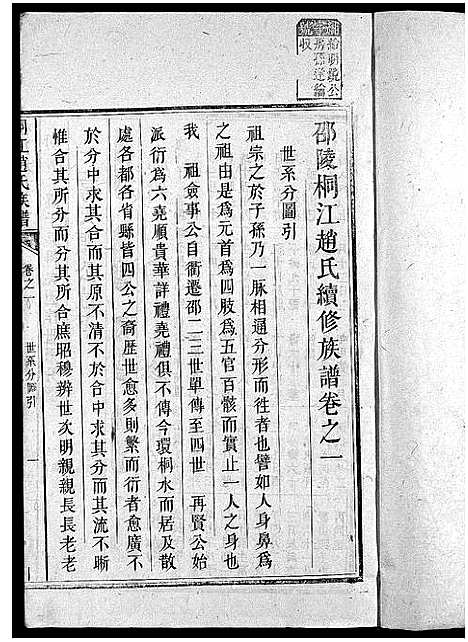 補字號
給明競公
房孫達綸
收
邵陵桐江趙氏續修族譜卷之一
世系分圖引
祖宗之於子孫乃一脉相通分形而徃者也譬如人身鼻爲
之祖由是爲元首爲四肢爲五官百骸而實止一人之身也
我 祖僉事公自衢遷邵二三世單傳至四世 再賢公始
派衍爲六堯順貴華詳禮堯禮俱不傳今環桐水而居及散
處各都各省縣皆四公之裔歷世愈多則繁而衍者愈廣不
於分中求其合而其原不清不於合中求其分而其流不晰
惟合其所分而分其所合庶昭穆辨世次明親親長長老老
桐江趙氏族譜
卷之一
世系分圖引
一